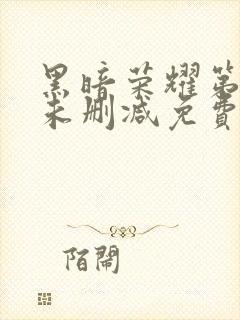 黑暗荣耀第
未删减免費
陌鬧